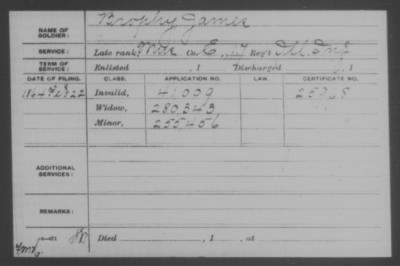 NAME OF SOLDIER: Brophy James
SERVICE: Late rank, Co. E, 17 Reg't Ill. Inf
TERM OF SERVICE: Enlisted , 1 Discharged , 1
DATE OF FILING. CLASS. APPLICATION NO. LAW. CERTIFICATE NO.
Invalid, 41,009
Widow, 280,343
Minor, 255,456
ADDITIONAL SERVICES:
REMARKS:
Died , 1 , at